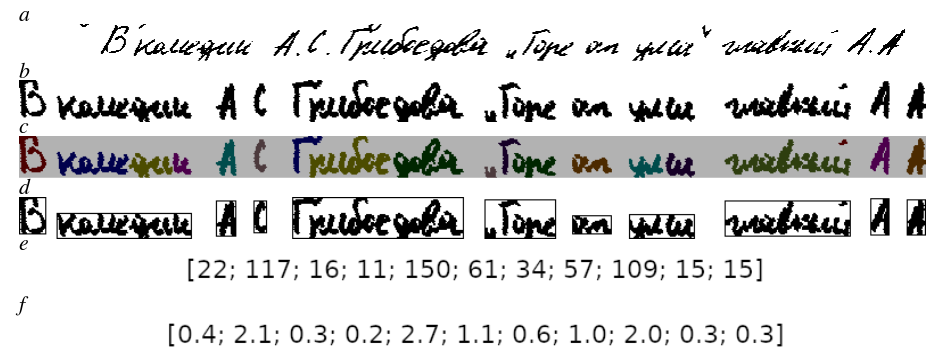 a
В комедии А.С. Грибоедова „Горе от ума“ главный А.А
b
В комедии А С Грибоедова „Горе от ума главный А А
c
В комедии А С Грибоедова „Горе от ума главный А А
d
В комедии А С Грибоедова „Горе от ума главный А А
e
[22; 117; 16; 11; 150; 61; 34; 57; 109; 15; 15]
f
[0.4; 2.1; 0.3; 0.2; 2.7; 1.1; 0.6; 1.0; 2.0; 0.3; 0.3]